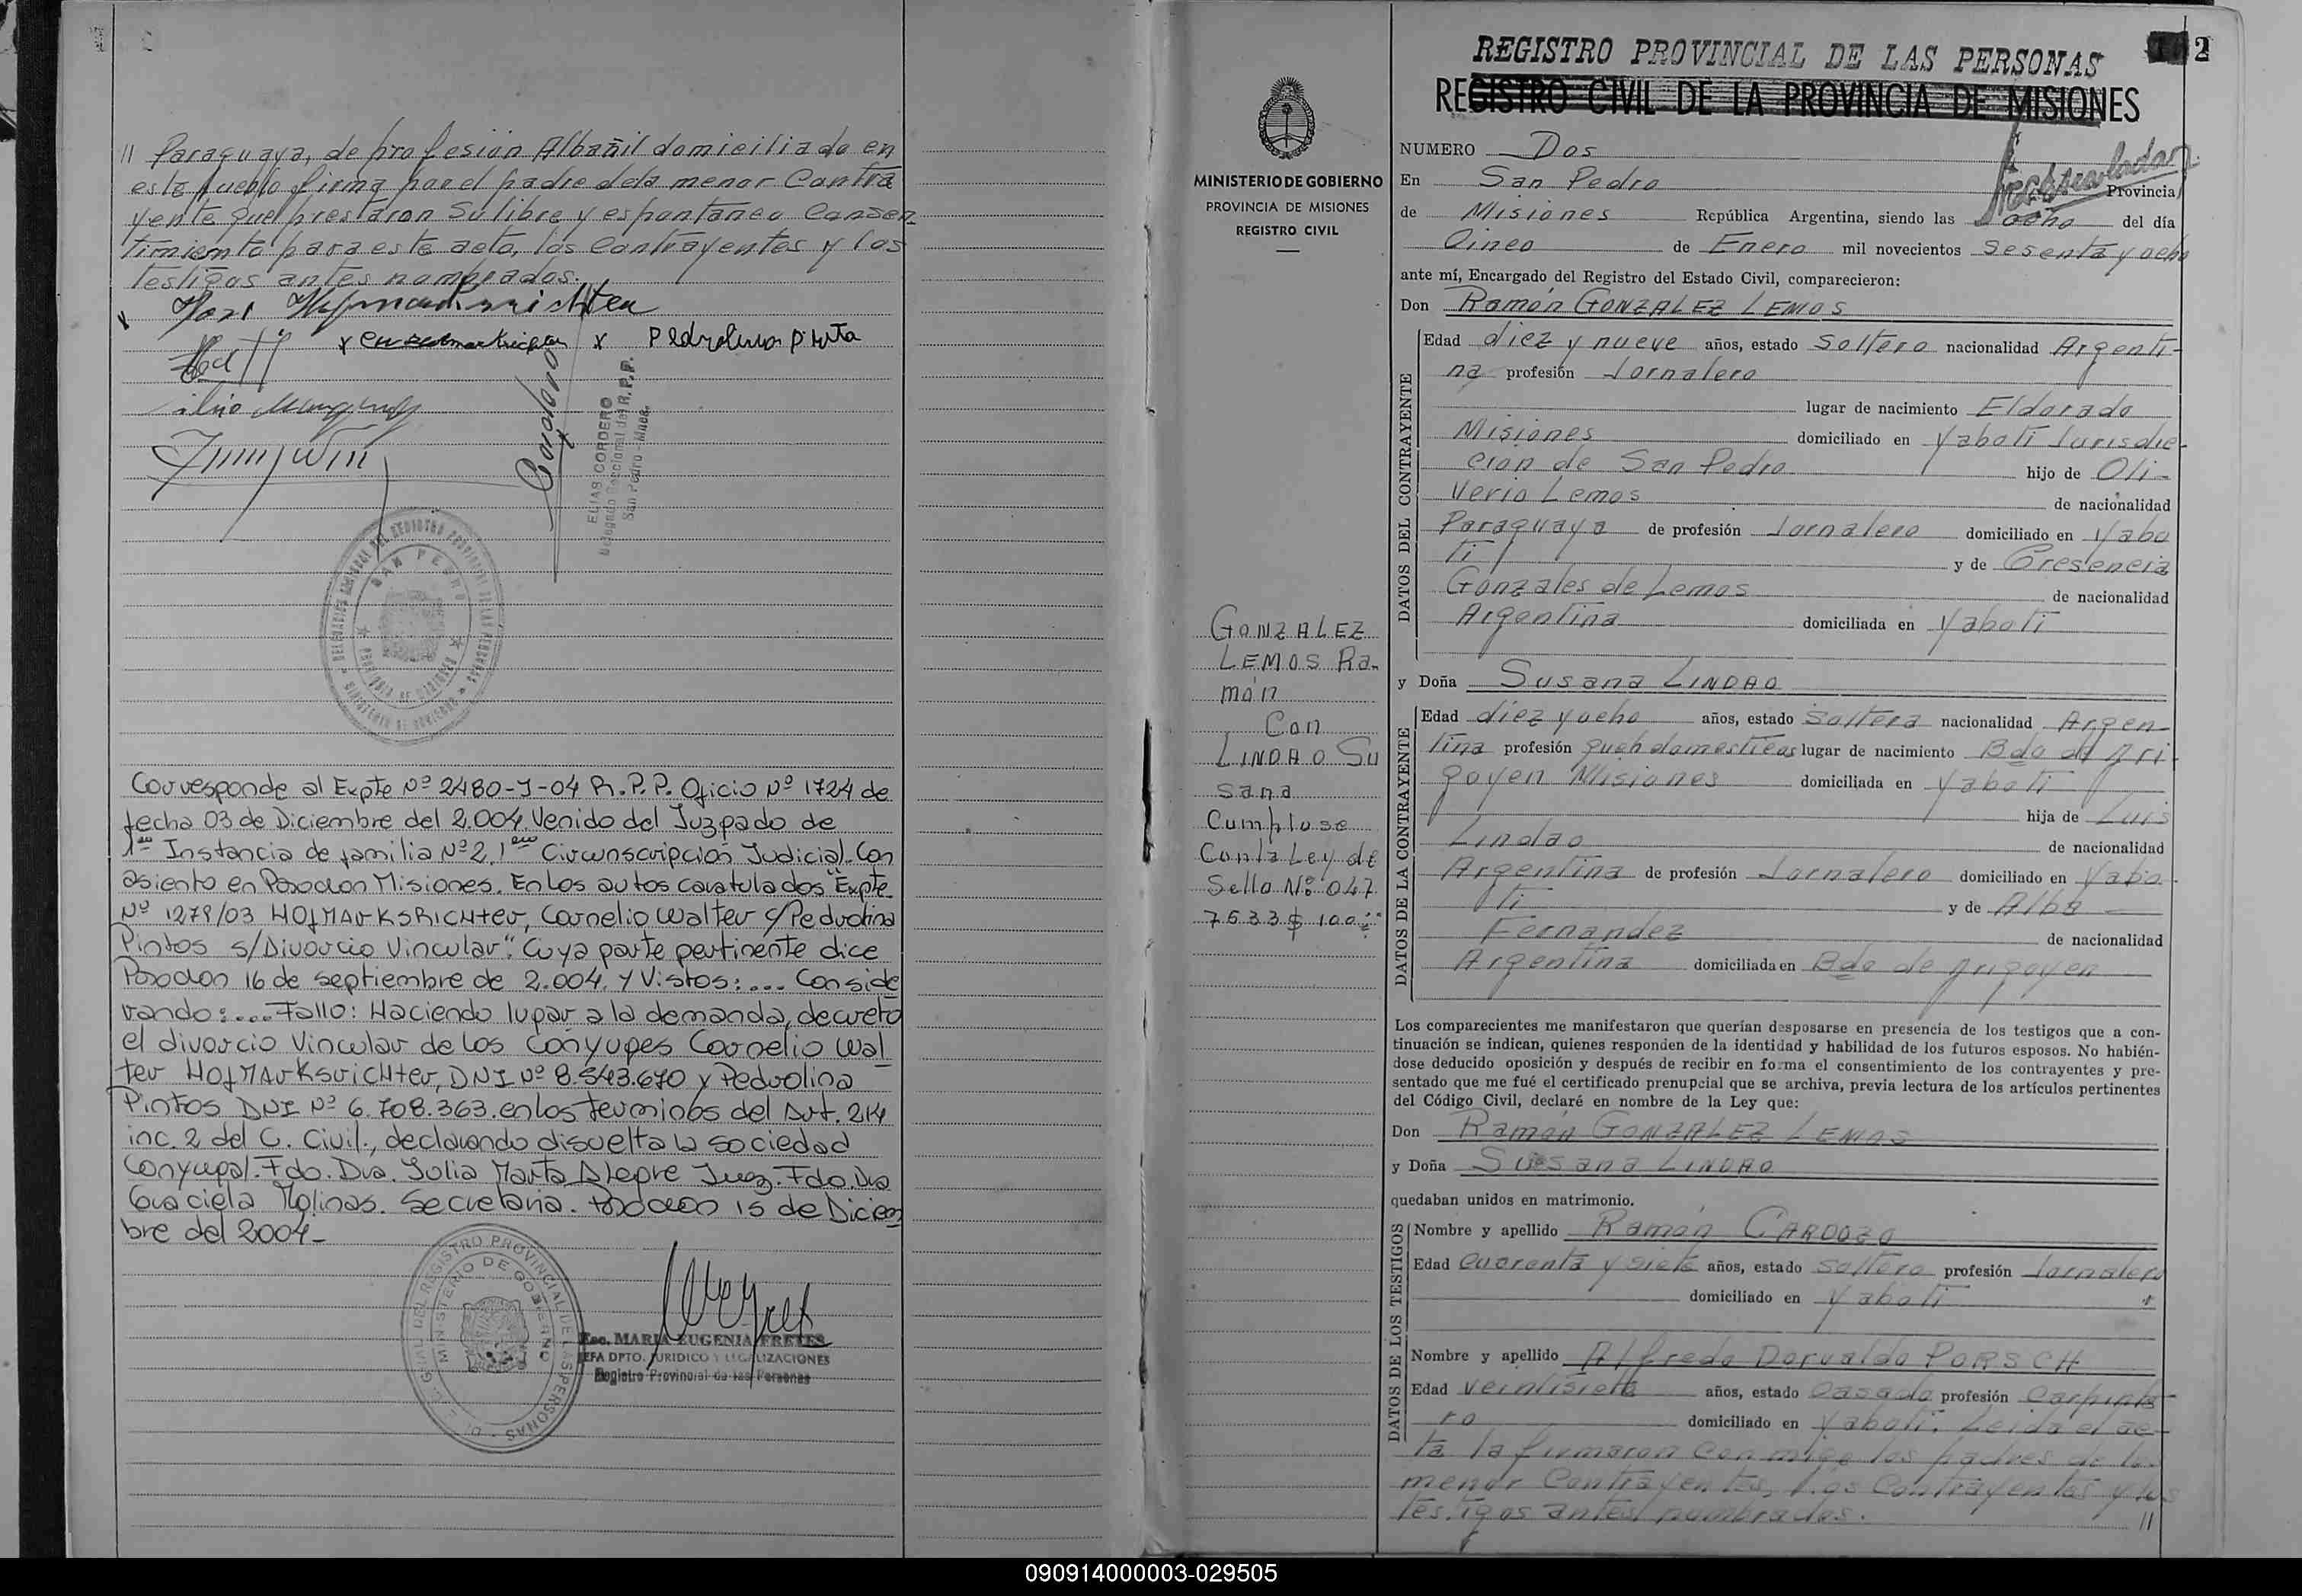 // Paraguaya, de profesión Albañil domiciliado en
este pueblo firma por el padre dela menor Contra
yente que prestaron su libre y espontaneo Consen
timiento para este acto, los Contrayentes y los
testigos antes nombrados.
x
x x Pedrolina Pinto
ELIAS CORDERO
Delegado Seccional del R.P.P.
San Pedro - Mnes.
SAN PEDRO
Corresponde al Expte Nº 2480-J-04 R.P.P. Oficio Nº 1724 de
fecha 03 de Diciembre del 2.004. Venido del Juzgado de
1ra Instancia de familia Nº 2, 1era Circunscripción Judicial. Con
asiento en Posadas Misiones. En los autos caratulados "Expte
Nº 1279/03 HOfMArKSRICHter, Cornelio Walter c/ Pedrolina
Pintos s/Divorcio Vincular". Cuya parte pertinente dice
Posadas 16 de septiembre de 2.004. Y Vistos:... Conside
rando:... Fallo: Haciendo lugar a la demanda, decreto
el divorcio Vincular de los Conyuges Cornelio Wal
ter HOfMArKSriCHter, DNI Nº 8.543.670 y Pedrolina
Pintos DNI Nº 6.708.363. en los terminos del Art. 214
inc. 2 del C. Civil., declarando disuelta la sociedad
Conyugal. Fdo. Dra. Julia Marta Alegre Juez. Fdo. Dra
Graciela Molinas. Secretaria. Posadas 15 de Diciem
bre del 2004-
Esc. MARIA EUGENIA FRETES
JEFA DPTO. JURIDICO Y LEGALIZACIONES
Registro Provincial de las Personas
MINISTERIO DE GOBIERNO
PROVINCIA DE MISIONES
REGISTRO CIVIL
GONZALEZ
LEMOS Ra-
món
Con
LINDAO Su
sana
Cumpluse
Con la Ley de
Sello Nº: 047
7533 $ 100
2
REGISTRO PROVINCIAL DE LAS PERSONAS
REGISTRO CIVIL DE LA PROVINCIA DE MISIONES
NUMERO Dos
En San Pedro Provincia
de Misiones República Argentina, siendo las ocho del día
Cinco de Enero mil novecientos sesenta y ocho
ante mí, Encargado del Registro del Estado Civil, comparecieron:
Don Ramón GONZALEZ LEMOS
DATOS DEL CONTRAYENTE
Edad diez y nueve años, estado Soltero nacionalidad Argenti-
na profesión Jornalero
lugar de nacimiento Eldorado
Misiones domiciliado en Yaboti Jurisdic-
cion de San Pedro hijo de Oli-
verio Lemos de nacionalidad
Paraguaya de profesión Jornalero domiciliado en Yabo
ti y de Cresencia
Gonzales de Lemos de nacionalidad
Argentina domiciliada en Yaboti
y Doña Susana LINDAO
DATOS DE LA CONTRAYENTE
Edad diez y ocho años, estado Soltera nacionalidad Argen-
tina profesión queh domesticos lugar de nacimiento Bdo de Iri-
goyen Misiones domiciliada en Yaboti
hija de Luis
Lindao de nacionalidad
Argentina de profesión Jornalero domiciliado en Yabo-
ti y de Alba
Fernandez de nacionalidad
Argentina domiciliada en Bdo de Irigoyen
Los comparecientes me manifestaron que querían desposarse en presencia de los testigos que a con-
tinuación se indican, quienes responden de la identidad y habilidad de los futuros esposos. No habién-
dose deducido oposición y después de recibir en forma el consentimiento de los contrayentes y pre-
sentado que me fué el certificado prenupcial que se archiva, previa lectura de los artículos pertinentes
del Código Civil, declaré en nombre de la Ley que:
Don Ramón GONZALEZ LEMOS
y Doña Susana LINDAO
quedaban unidos en matrimonio.
DATOS DE LOS TESTIGOS
Nombre y apellido Ramón CARDOZO
Edad cuarenta y siete años, estado soltero profesión Jornalero
domiciliado en Yaboti
Nombre y apellido Alfredo Dorvaldo PORSCH
Edad veintisiete años, estado casado profesión Carpinte-
ro domiciliado en Yaboti. Leida el ac-
ta la firmaron conmigo los padres de los
menor Contrayentes, los Contrayentes y los
testigos antes nombrados. //
090914000003-029505